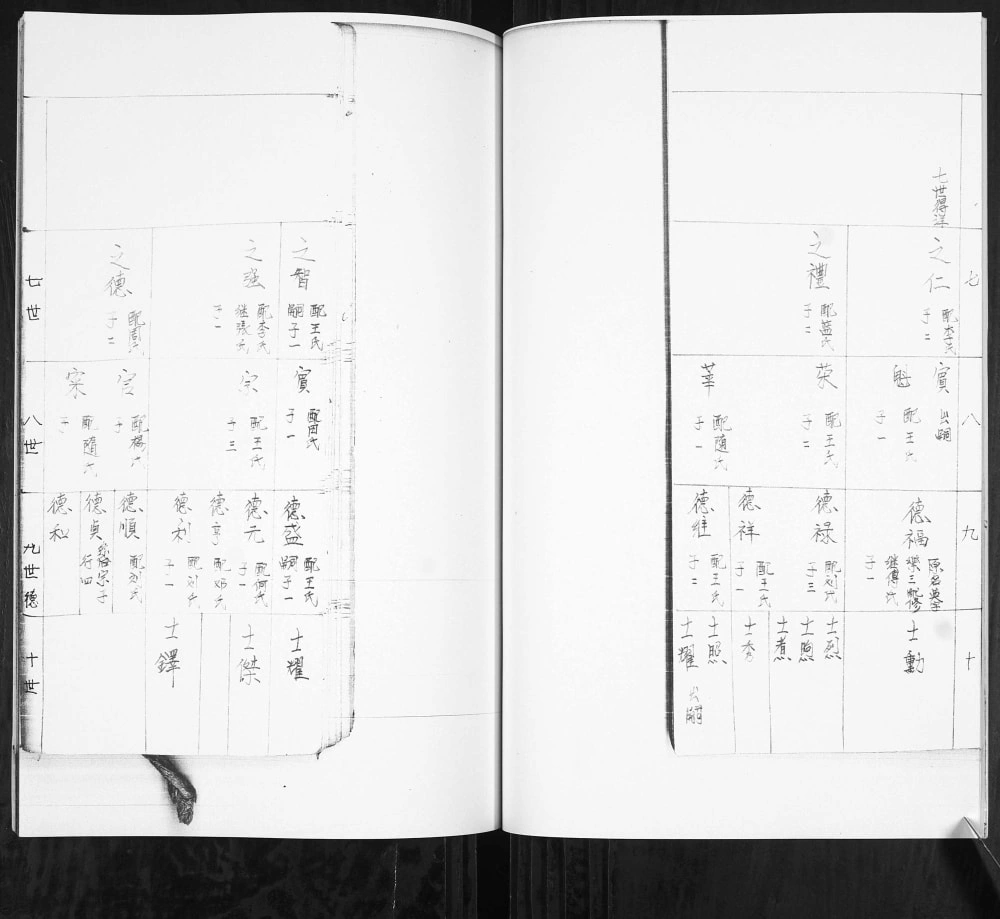 七世得洋
七
之仁
配李氏
子二
之禮
配藍氏
子二
八
實
出嗣
魁
配王氏
子一
荣
配王氏
子二
華
配隨氏
子一
九
德福
继傅氏
子一
德禄
配刘氏
子三
德祥
配王氏
子一
德维
配王氏
子二
十
士勳
士烈
士煦
士煮
士秀
士照
士耀
出嗣
之智
配王氏
嗣子一
之强
配李氏
继張氏
子一
之德
配周氏
子二
七世
實
配田氏
子一
宗
配王氏
子三
官
配楊氏
子
寀
配隨氏
子
八世
德盛
配王氏
嗣子一
德元
配何氏
子一
德亨
配邓氏
德利
配刘氏
子一
德順
配刘氏
德貞
行四
德和
九世德
士耀
士傑
士鐸
十世